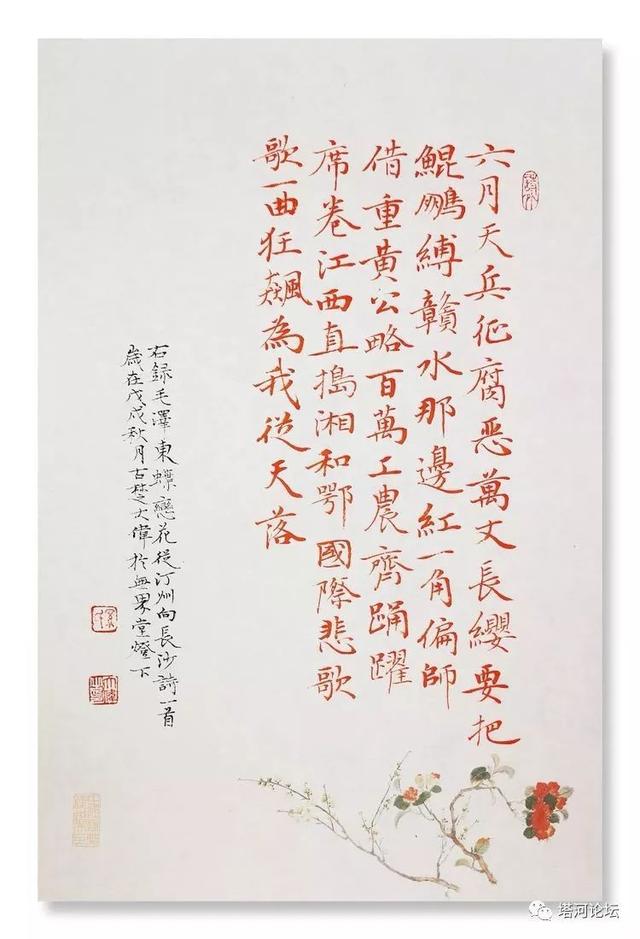 六月天兵征腐恶萬丈長纓要把
鯤鵬縛贛水那邊紅一角偏師
借重黄公略百萬工農齊踊躍
席卷江西直搗湘和鄂國際悲歌
歌一曲狂飆為我從天落
右録毛澤東蝶戀花從汀州向長沙詩一首
歲在戊戌秋月古楚大偉於無果堂燈下
塔河论坛